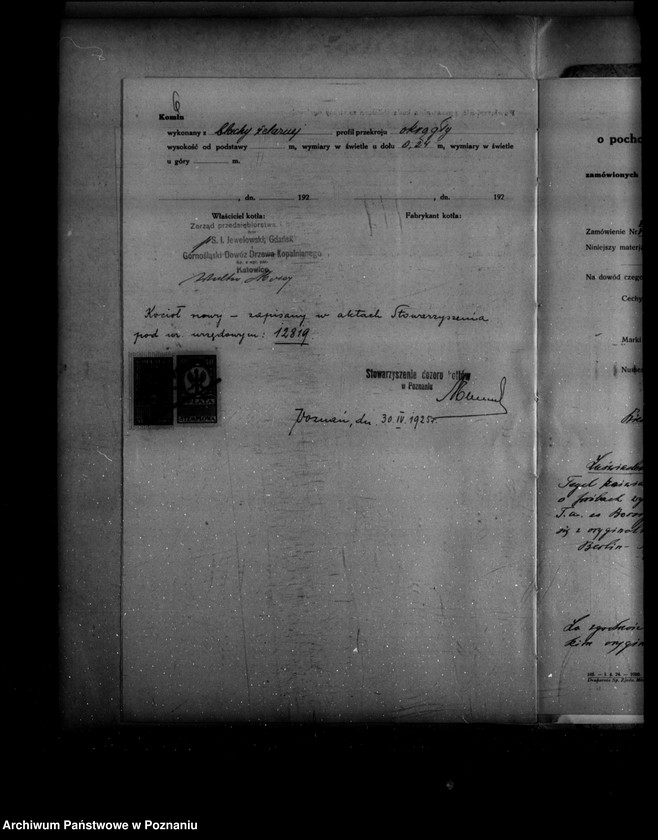 6
Komin
wykonany z blachy żelaznej profil przekroju okrągły
wysokość od podstawy m, wymiary w świetle u dołu 0,24 m, wymiary w świetle
u góry m.
, dn. 192 , dn. 192
Właściciel kotła: Fabrykant kotła:
Zarząd przedsiębiorstwa
S. I. Jewelowski, Gdańsk
Górnośląski Dowóz Drzewa Kopalnianego
Katowice
Kocioł nowy – zapisany w aktach Stowarzyszenia
pod nr. urzędowym: 12819.
Stowarzyszenie dozoru kotłów
w Poznaniu
Poznań, dn. 30.IV.1925r.
o pocho
zamówionych
Zamówienie Nr.
Niniejszy materj
Na dowód czego
Cechy
Marki
Nume
o próbach
się z orygina
Berlin-
Za zgodność
kim orygin
Archiwum Państwowe w Poznaniu